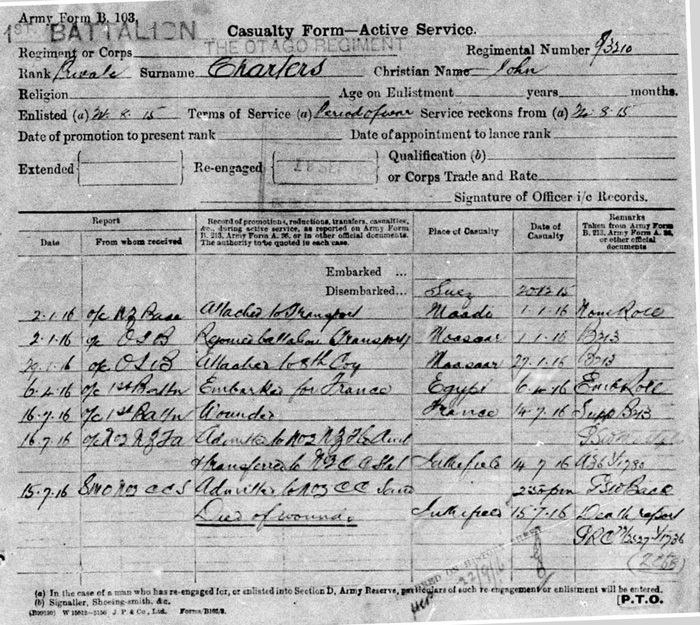 Army Form B. 103.
1ST BATTALION
Casualty Form—Active Service.
THE OTAGO REGIMENT
Regiment or Corps Regimental Number 8/3210
Rank Private Surname Charters Christian Name John
Religion Age on Enlistment years months.
Enlisted (a) 24. 8. 15 Terms of Service (a) Period of war Service reckons from (a) 24. 8. 15
Date of promotion to present rank Date of appointment to lance rank
Extended Re-engaged Qualification (b)
or Corps Trade and Rate
Signature of Officer i/c Records.
Report
Date From whom received
Record of promotions, reductions, transfers, casualties,
&c., during active service, as reported on Army Form
B. 213, Army Form A. 36, or in other official documents.
The authority to be quoted in each case.
Place of Casualty
Date of
Casualty
Remarks
Taken from Army Form
B. 213, Army Form A. 36,
or other official
documents
Embarked ...
Disembarked... Suez 20 12 15
2-1-16 o/c NZ Base Attached to Transport Maadi 1-1-16 Nom Roll
2-1-16 o/c O I B Rejoined battalion (Transport) Moascar 1-1-16 B213
29-1-16 o/c O I B Attached to 8th Coy Moascar 29-1-16 B213
6-4-16 o/c 1st Battn Embarked for France Egypt 6-4-16 Emb Roll
16-7-16 o/c 1st Battn Wounded France 14-7-16 Supp B213
16.7.16 o/c No 2 NZ FA Admitted to No 2 NZ Fld Amb
& transferred to No 2 CC Stat in the field 14 7 16 A36
15-7-16 No 2 CCS Admitted to No 2 CC Stat 2.30 pm
Died of wounds in the field 15-7-16 Death report
22/9/16
(a) In the case of a man who has re-engaged for, or enlisted into Section D, Army Reserve, particulars of such re-engagement or enlistment will be entered.
(b) Signaller, Shoeing-smith, &c.
J. P. & Co., Ltd. Forms/B103/2.
[P.T.O.